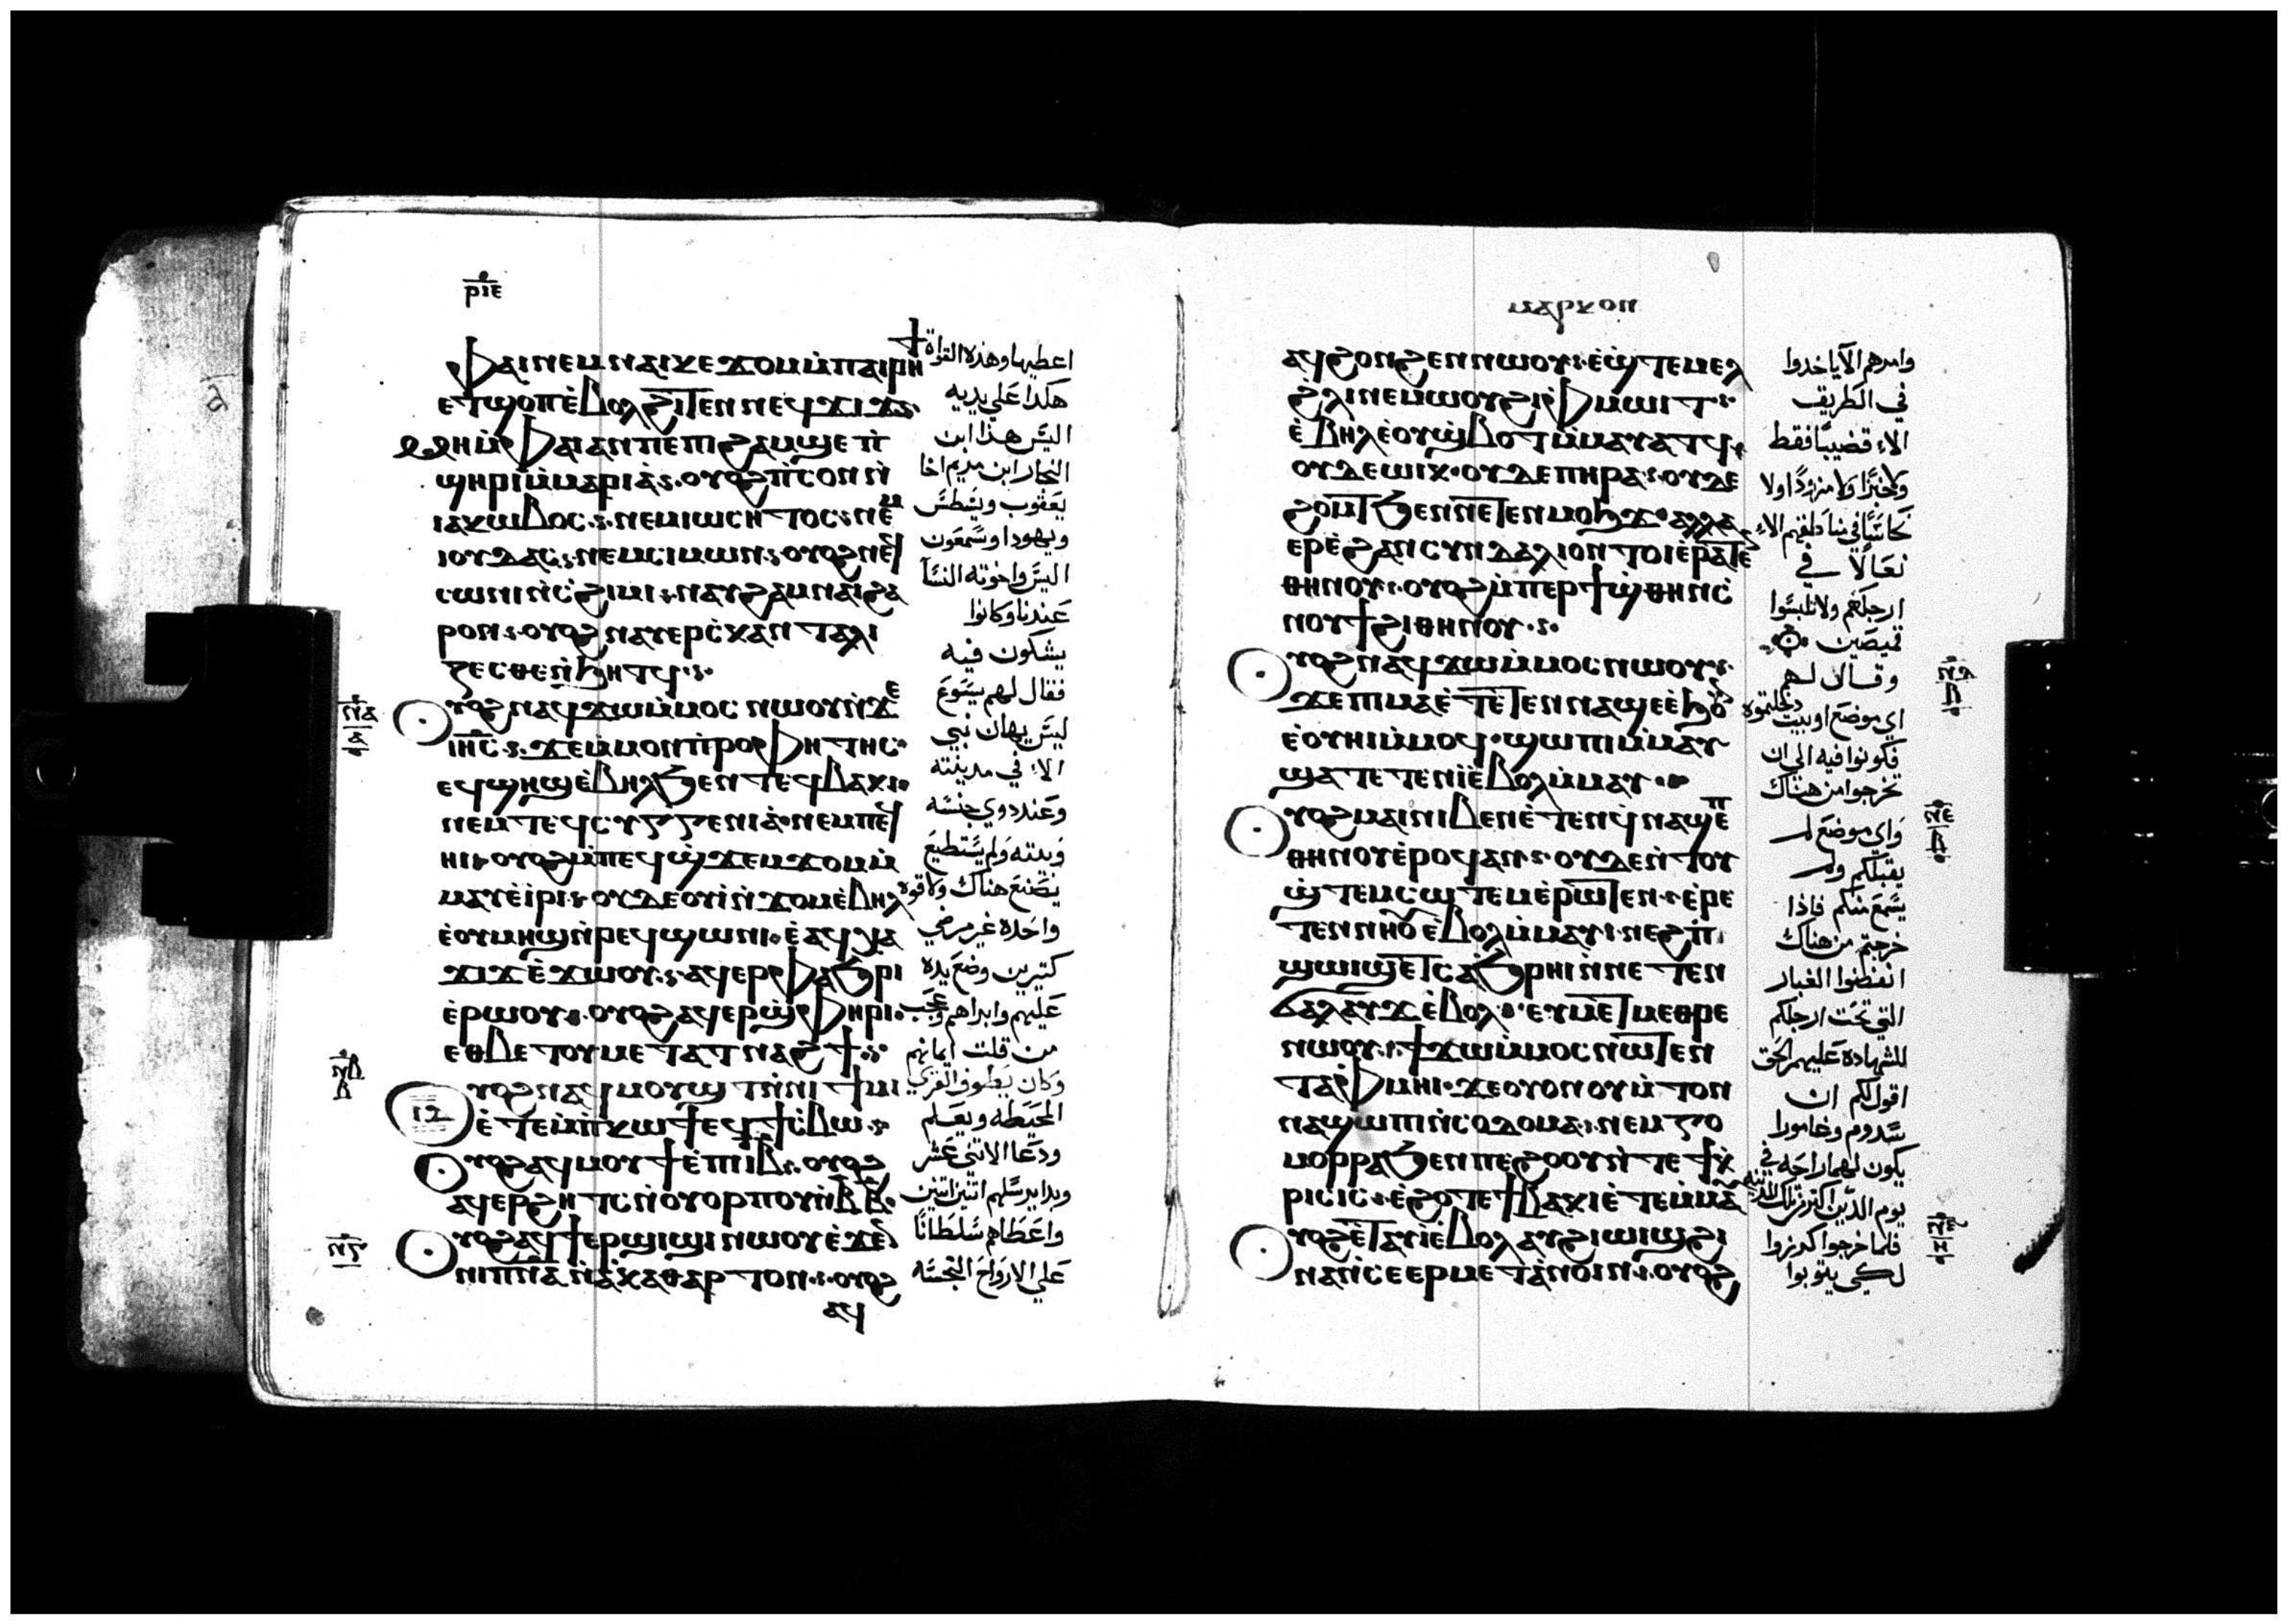 ⲣⲓⲉ
ⲫⲁⲓ ⲛⲉⲙ ⲛⲁⲓⲕⲉϫⲟⲙ ⲙ̀ⲡⲁⲓⲣⲏϯ
ⲉⲧϣⲟⲡ ⲉ̀ⲃⲟⲗ ϩⲓⲧⲉⲛ ⲛⲉϥϫⲓϫ
ⲙⲏ ⲙ̀ⲫⲁⲓ ⲁⲛ ⲡⲉ ⲡⲓϩⲁⲙϣⲉ ⲡ̀
ϣⲏⲣⲓ ⲙ̀ⲙⲁⲣⲓⲁ̀ ⲟⲩⲟϩ ⲡ̀ⲥⲟⲛ ⲛ̀
ⲓⲁⲕⲱⲃⲟⲥ ⲛⲉⲙ ⲓⲱⲥⲏⲧⲟⲥ ⲛⲉⲙ
ⲓⲟⲩⲇⲁⲥ ⲛⲉⲙ ⲥⲓⲙⲱⲛ ⲟⲩⲟϩ ⲛⲉϥ
ⲥⲱⲛⲓ ⲛ̀ⲥϩⲓⲙⲓ ⲛⲁⲩϩⲁⲙⲛⲁⲓ ϩⲁ
ⲣⲟⲛ ⲟⲩⲟϩ ⲛⲁⲩⲉⲣⲥⲕⲁⲛⲧⲁⲗⲓ
ⲍⲉⲥⲑⲉ ⲛ̀ϧⲏⲧϥ
ⲟⲩⲟϩ ⲛⲁϥϫⲱ ⲙ̀ⲙⲟⲥ ⲛⲱⲟⲩ ⲛ̀ϫⲉ
ⲓⲏⲥ ϫⲉ ⲙⲙⲟⲛ ⲡ̀ⲣⲟⲫⲏⲧⲏⲥ
ⲉϥϣⲏϣ ⲉ̀ⲃⲏⲗ ϧⲉⲛ ⲧⲉϥⲃⲁⲕⲓ
ⲛⲉⲙ ⲧⲉϥⲥⲩⲅⲅⲉⲛⲓⲁ̀ ⲛⲉⲙ ⲡⲉϥ
ⲏⲓ ⲟⲩⲟϩ ⲙ̀ⲡⲉϥϣ̀ϫⲉⲙϫⲟⲙ ⲙ̀
ⲙⲁⲩ ⲉ̀ⲓⲣⲓ ⲟⲩⲇⲉ ⲟⲩⲓ̀ ⲛ̀ϫⲟⲙ ⲉ̀ⲃⲏⲗ
ⲉ̀ⲟⲩⲙⲏϣ ⲛ̀ⲣⲉϥϣⲱⲛⲓ ⲉ̀ⲁϥⲭⲁ
ϫⲓϫ ⲉ̀ϫⲱⲟⲩ ⲁϥⲉⲣⲫⲁϧⲣⲓ
ⲉ̀ⲣⲱⲟⲩ ⲟⲩⲟϩ ⲁϥⲉⲣϣ̀ⲫⲏⲣⲓ
ⲉⲑⲃⲉ ⲧⲟⲩⲙⲉⲧⲁⲧⲛⲁϩϯ
ⲟⲩⲟϩ ⲛⲁϥⲙⲟⲩϣⲧ ⲛ̀ⲛⲓϯⲙⲓ
ⲉ̀ⲧⲉⲙⲡ̀ⲕⲱϯ ⲉϥϯⲥ̀ⲃⲱ
ⲟⲩⲟϩ ⲁϥⲙⲟⲩϯ ⲉ̀ⲡⲓⲓⲃ ⲟⲩⲟϩ
ⲁϥⲉⲣϩⲏⲧⲥ ⲛ̀ⲟⲩⲟⲣⲡⲟⲩ ⲛ̀ⲃ ⲃ
ⲟⲩⲟϩ ⲁϥϯⲉⲣϣⲓϣⲓ ⲛⲱⲟⲩ ⲉ̀ϫⲉⲛ
ⲛⲓⲡⲛⲁ ⲛ̀ⲁ̀ⲕⲁⲑⲁⲣⲧⲟⲛ ⲟⲩⲟϩ
ⲁϥ
اعطيها وهذه القواة
هكدا علي يديه
اليس هذا ابن
النجار ابن مريم اخا
يعقوب ويسطس
ويهودا وسمعون
اليس واخوته النسآ
عندنا وكانوا
يشكون فيه
فقال لهم يسوع
ليس يهان نبي
الاء في مدينته
وعند دوي جنسه
وبيته ولم يستطيع
يصنع هناك ولا قوه
واحده غير مرضي
كتيرين وضع يده
عليهم وابراهم وعجب
من قلت ايمانهم
وكان يطوف القري
المحيطه ويعلم
ودعا الاتني عشر
وبدا يرسلهم اتنين اتنين
واعطاهم سلطانًا
علي الارواح النجسه
ⲛⲁ
ⲁ
ⲛⲃ
ⲃ
ⲛⲅ
ⲙⲁⲣⲕⲟⲛ
ⲁϥϩⲟⲛϩⲉⲛ ⲛⲱⲟⲩ ⲉ̀ϣⲧⲉⲙⲉⲗ
ϩ̀ⲗⲓ ⲛⲉⲙⲱⲟⲩ ϩⲓ ⲫⲙⲱⲓⲧ
ⲉ̀ⲃⲏⲗ ⲉ̀ⲟⲩϣ̀ⲃⲟⲧ ⲙ̀ⲙⲁⲩⲁⲧϥ
ⲟⲩⲇⲉ ⲱⲓⲕ ⲟⲩⲇⲉ ⲡⲏⲣⲁ ⲟⲩⲇⲉ
ϩⲟⲙⲧ ϧⲉⲛ ⲛⲉⲧⲉⲛⲙⲟϧϫ ⲁⲗⲗⲁ
ⲉⲣⲉ̀ ϩⲁⲛⲥⲩⲛⲇⲁⲗⲓⲟⲛ ⲧⲟⲓ ⲉ̀ⲣⲁⲧⲉⲛ
ⲑⲏⲛⲟⲩ ⲟⲩⲟϩ ⲙ̀ⲡⲉⲣϯϣ̀ⲑⲏⲛ ⲥ̀
ⲛⲟⲩϯ ϩⲓⲑⲏⲛⲟⲩ
ⲟⲩⲟϩ ⲛⲁϥϫⲱ ⲙ̀ⲙⲟⲥ ⲛⲱⲟⲩ
ϫⲉ ⲡⲓⲙⲁ ⲉ̀ⲧⲉⲧⲉⲛⲛⲁϣⲉ ⲉ̀ϧⲟⲩⲛ
ⲉ̀ⲟⲩⲏⲓ ⲙ̀ⲙⲟϥ ϣⲱⲡⲓ ⲙ̀ⲙⲁⲩ
ϣⲁⲧⲉⲧⲉⲛⲓ̀ ⲉ̀ⲃⲟⲗ ⲙ̀ⲙⲁⲩ
ⲟⲩⲟϩ ⲙⲁⲓ ⲛⲓⲃⲉⲛ ⲉ̀ⲧⲉⲛϥⲛⲁϣⲉⲡ
ⲑⲏⲛⲟⲩ ⲉ̀ⲣⲟϥ ⲁⲛ ⲟⲩⲇⲉ ⲛ̀ⲧⲟⲩ
ϣ̀ⲧⲉⲙⲥⲱⲧⲉⲙ ⲉ̀ⲣⲱⲧⲉⲛ ⲉ̀ⲣⲉ
ⲧⲉⲛⲛⲏⲟⲩ ⲉ̀ⲃⲟⲗ ⲙ̀ⲙⲁⲩ ⲛⲉϩ ⲡⲓ
ϣⲱⲓϣ ⲉⲧⲥⲁϧⲣⲏⲓ ⲛ̀ⲛⲉⲧⲉⲛ
ϭⲁⲗⲁⲩϫ ⲉ̀ⲃⲟⲗ ⲉⲩⲙⲉⲧⲙⲉⲑⲣⲉ
ⲛⲱⲟⲩ ϯϫⲱ ⲙ̀ⲙⲟⲥ ⲛⲱⲧⲉⲛ
ⲧⲁⲫⲙⲏⲓ ϫⲉ ⲟⲩⲟⲛ ⲟⲩⲙ̀ⲧⲟⲛ
ⲛⲁϣⲱⲡⲓ ⲛ̀ⲥⲟⲇⲟⲙⲁ ⲛⲉⲙ ⲅⲟ
ⲙⲟⲣⲣⲁ ϧⲉⲛ ⲡⲉϩⲟⲟⲩ ⲛ̀ⲧⲉ ϯⲕ̀
ⲣⲓⲥⲓⲥ ⲉ̀ϩⲟⲧⲉ ϯⲃⲁⲕⲓ ⲉ̀ⲧⲉⲙⲙⲁⲩ
ⲟⲩⲟϩ ⲉ̀ⲧⲁⲩⲓ̀ ⲉ̀ⲃⲟⲗ ⲁⲩϩⲓⲱⲓϣ ϩⲓ
ⲛⲁ ⲛ̀ⲥⲉⲉⲣⲙⲉⲧⲁ̀ⲛⲟⲓⲛ ⲟⲩⲟϩ
وامرهم الآ ياخدوا
في الطريق
الاء قضيبًا فقط
ولا خبزًا ولا مزودًا ولا
نحاسًا في مناطقهم الاء
نعالاً في
ارجلكم ولا تلبسوا
قميصين
وقال لهم
اي موضع او بيت دخلتموه
فكونوا فيه الي ان
تخرجوا من هناك
واي موضع لم
يقبلكم ولم
يسمع منكم فاذا
خرجتم من هناك
انفضوا الغبار
التي تحت ارجلكم
للشهاده عليهم الحق
اقول لكم ان
سدوم وغامورا
يكون لهما راحه في
يوم الدين اكتر من تلك المدينه
فلما خرجوا كرزوا
لكي يتوبوا
ⲛⲇ
ⲃ
ⲛⲉ
ⲃ
ⲛⲋ
ⲏ